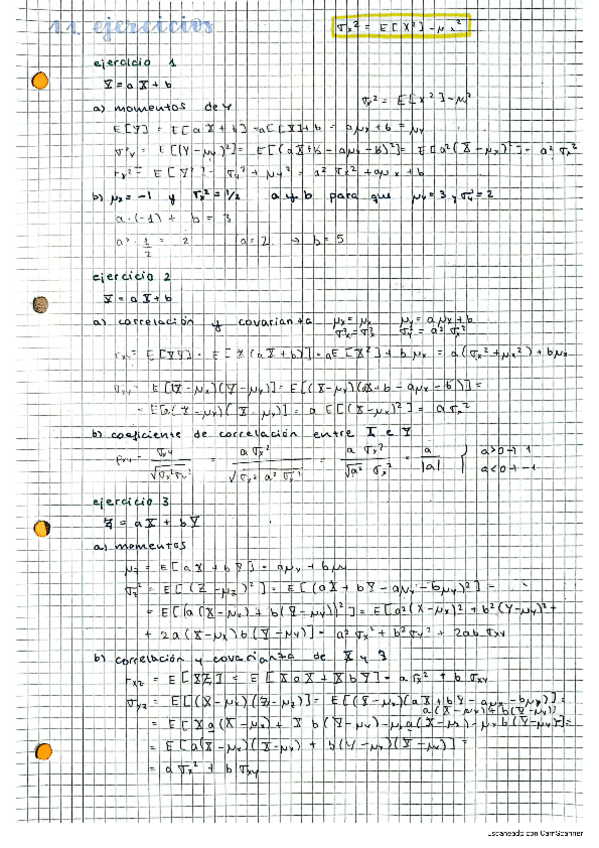 11. ejercicios
σx² = E[X²] - μx²
ejercicio 1
Y = aX + b
a) momentos de Y
σx² = E[X²] - μ²
E[Y] = E[aX + b] = aE[X] + b = aμx + b = μy
σ²y = E[(Y-μy)²] = E[(aX+b - aμx - b)²] = E[a²(X-μx)²] = a²σx²
b) μx = -1 y σx² = 1/2 a y b para que μy = 3 y σy² = 2
a·(-1) + b = 3
a² · 1/2 = 2 a = 2 → b = 5
ejercicio 2
Y = aX + b
a) correlación y covarianza μx = μx μy = aμx + b
σ²x = σ²x σy² = a²σx²
rxy = E[XY] = E[X(aX+b)] = aE[X²] + bμx = a(σx² + μx²) + bμx
σxy = E[(X-μx)(Y-μy)] = E[(X-μx)(aX+b-aμx-b)] =
= E[a(X-μx)(X-μx)] = aE[(X-μx)²] = aσx²
b) coeficiente de correlación entre X e Y
ρxy = σxy/√σx²σy² = aσx²/√σx² a²σx² = aσx²/√a² σx² = a/|a| } a>0 → 1
a<0 → -1
ejercicio 3
Z = aX + bY
a) momentos
μz = E[aX + bY] = aμx + bμy
σz² = E[(Z-μz)²] = E[(aX + bY - aμx - bμy)²] =
= E[(a(X-μx) + b(Y-μy))²] = E[a²(X-μx)² + b²(Y-μy)² +
+ 2a(X-μx)b(Y-μy)] = a²σx² + b²σy² + 2ab σxy
b) correlación y covarianza de X y 3
rxz = E[XZ] = E[XaX + XbY] = aσx² + bσxy
σxz = E[(X-μx)(Z-μz)] = E[(X-μx)(aX + bY - aμx - bμy)] =
a(X-μx) + b(Y-μy)
= E[Xa(X-μx) + Xb(Y-μy) - μxa(X-μx) - μxb(Y-μy)] =
= E[a(X-μx)(X-μx) + b(Y-μy)(X-μx)] =
= aσx² + bσxy
Escaneado con CamScanner